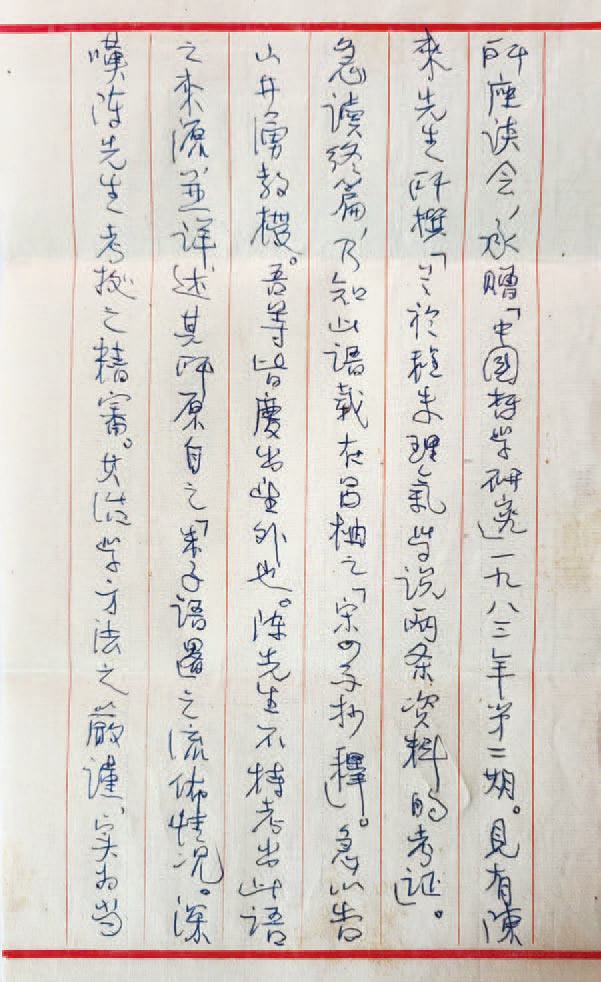 所座谈会，承赠「中国哲学研究」一九八三年第二期。見有陳
来先生所撰「关於程朱理氣学说两条资料的考证」。
急读终篇，乃知此语载在吕柟之「宋四子抄釋」。急以告
山井湧教授。吾等皆慶出望外也。陈先生不特考出此语
之来源，並详述其所原自之「朱子语畧」之流佈情况。深
嘆陈先生考援之精審。其治学方法之嚴谨，实为当